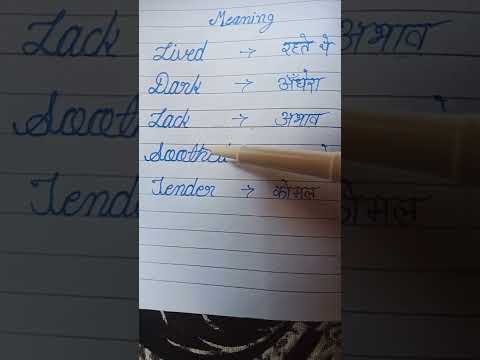 Meaning
Lived → रहते थे
Dark → अँधेरा
Lack → अभाव
Tender → कोमल